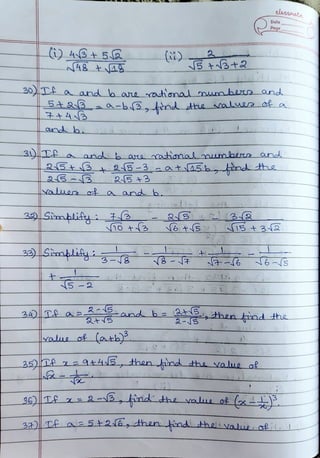 classmate
Date
Page
(i) (4√3 + 5√2)/(√48 + √18) (ii) 2/(√5 + √3 + 2)
30) If a and b are rational numbers and
(5 + 2√3)/(7 + 4√3) = a - b√3, find the values of a
and b.
31) If a and b are rational numbers and
(2√5 + √3)/(2√5 - √3) + (2√5 - 3)/(2√5 + 3) = a + √15 b, find the
values of a and b.
32) Simplify : 7√3/(√10 + √3) - 2√5/(√6 + √5) - 3√2/(√15 + 3√2)
33) Simplify : 1/(3 - √8) - 1/(√8 - √7) + 1/(√7 - √6) - 1/(√6 - √5)
+ 1/(√5 - 2)
34) If a = (2 - √5)/(2 + √5) and b = (2 + √5)/(2 - √5), then find the
value of (a+b)³.
35) If x = 9 + 4√5, then find the value of
√x - 1/√x.
36) If x = 2 - √3, find the value of (x - 1/x)³.
37) If a = 5 + 2√6, then find the value of